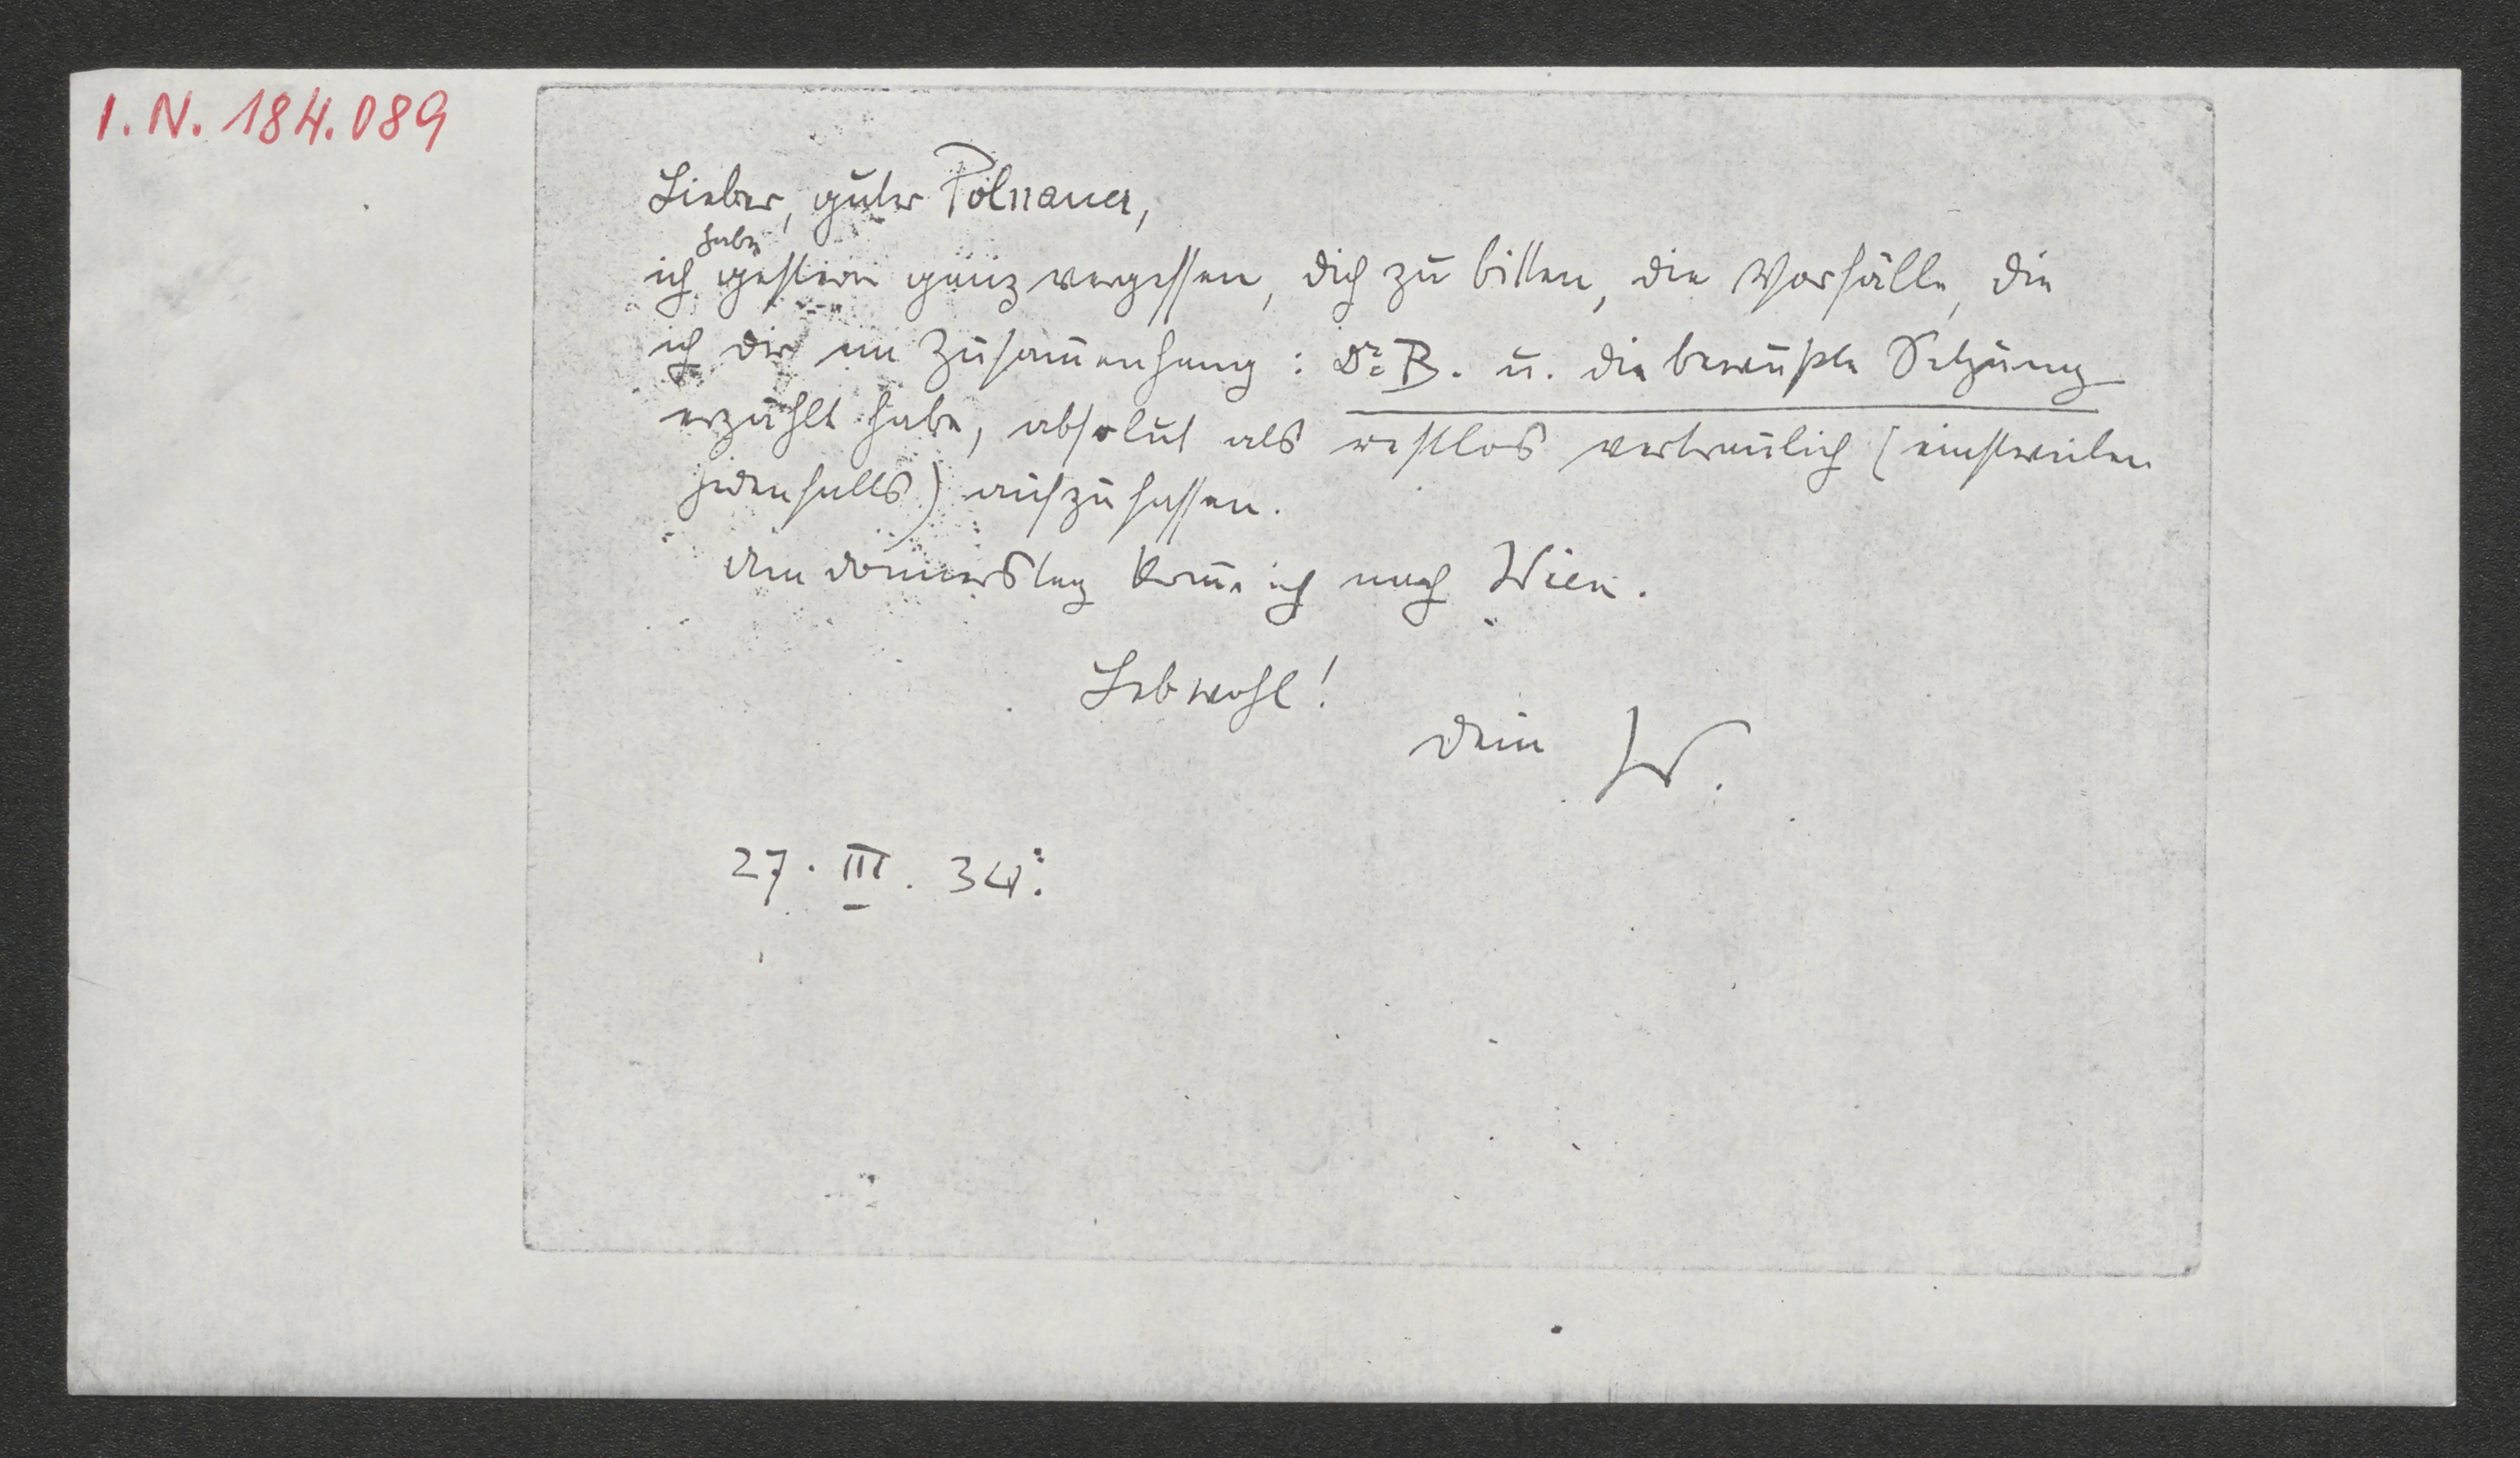 I.N. 184.089
Lieber, guter Polnauer,
habe
ich gestern ganz vergessen, dich zu bitten, die Vorfälle, die
ich dir im Zusam̅enhang : Dr B. u. die bewußte Setzung
erzählt habe, absolut als restlos vertraulich (einstweilen
jedenfalls) aufzufassen.
Am Donnerstag kom̅e ich nach Wien.
Lebwohl!
Dein W.
27. III. 34.